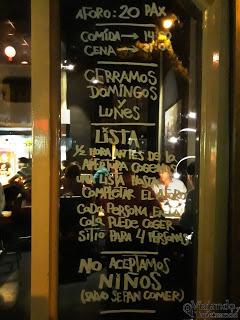 AFORO: 20 PAX
COMIDA → 14
CENA →
CERRAMOS
DOMINGOS
Y
LUNES
LISTA:
½ HORA ANTES DE LA
APERTURA COGEMOS
UNA LISTA HASTA
COMPLETAR EL AFORO
CADA PERSONA EN LA
COLA PUEDE COGER
SITIO PARA 4 PERSONAS
NO ACEPTAMOS
NIÑOS
(SALVO SEPAN COMER)
Viajando